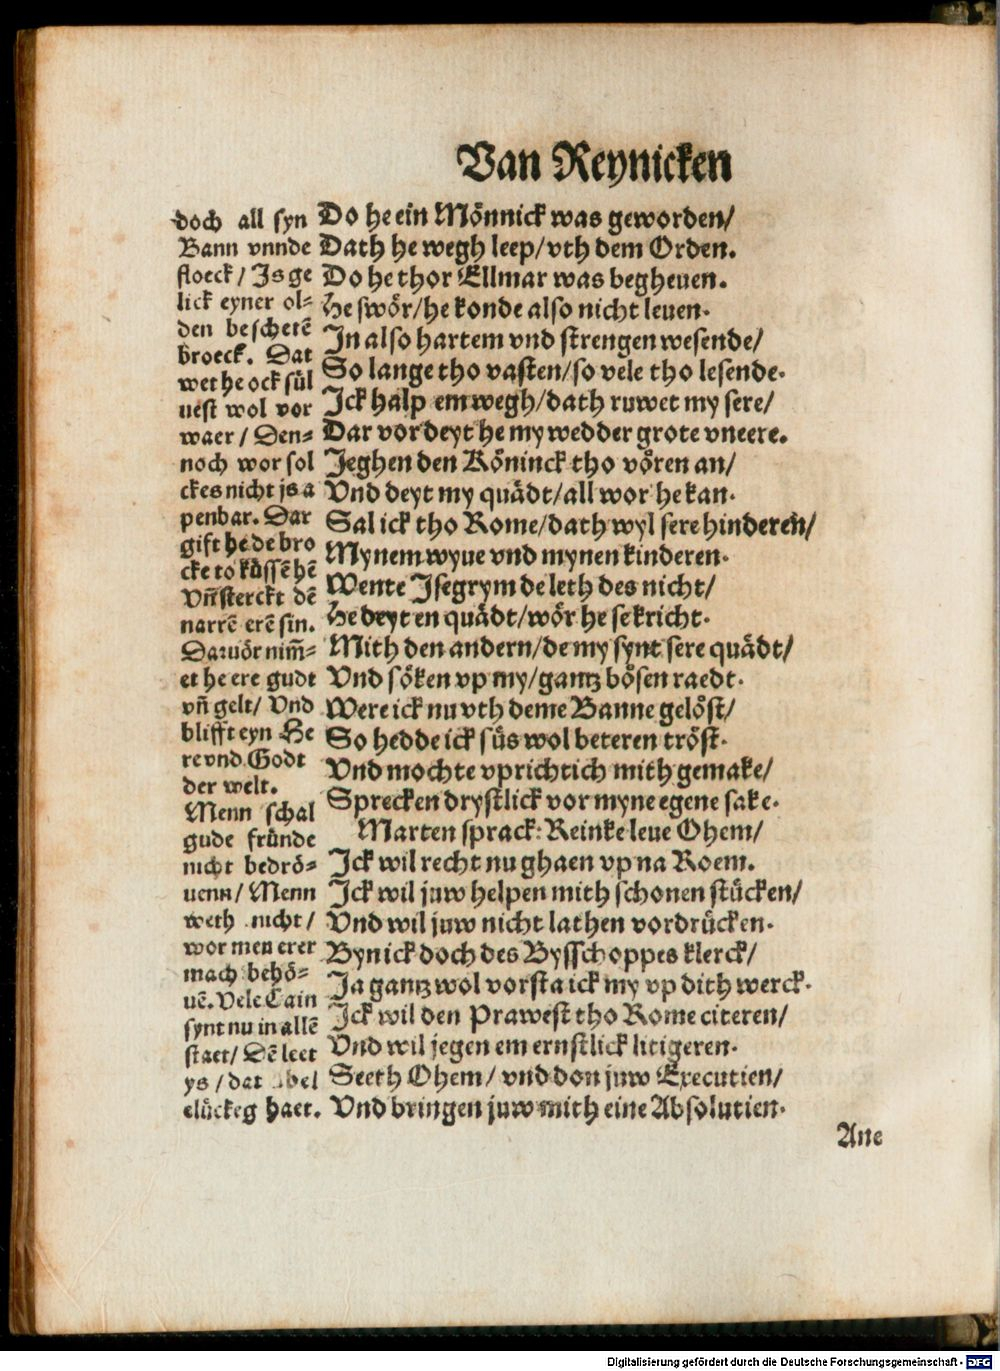 Van Reynicken
doch all syn
Bann vnnde
floeck / Js ge
lick eyner ol⸗
den beschetē
broeck. Dat
wet he ock sül
uest wol vor
waer / Den⸗
noch wor sol
ckes nicht js a
penbar. Dar
gift he de bro
cke to küssē hē
Vn̄ sterckt dē
narrē erē sin.
Daruör nim̄⸗
et he ere gudt
vn̄ gelt / Vnd
blifft eyn He
re vnd Godt
der welt.
Menn schal
gude fründe
nicht bedrö⸗
uenn / Menn
weth nicht /
wor men erer
mach behö⸗
uē. Vele Cain
synt nu in allē
staet / Dē leet
ys / dat bel
elückeg haet.
Do he ein Mönnick was geworden /
Dath he wegh leep / vth dem Orden.
Do he thor Ellmar was begheuen.
He swör / he konde also nicht leuen.
Jn also hartem vnd strengen wesende /
So lange tho vasten / so vele tho lesende.
Jck halp em wegh / dath ruwet my sere /
Dar vor deyt he my wedder grote vneere.
Jeghen den Köninck tho vören an /
Vnd deyt my quädt / all wor he kan.
Sal ick tho Rome / dath wyl sere hinderen /
Mynem wyue vnd mynen kinderen.
Wente Jsegrym de leth des nicht /
He deyt en quädt / wör he se kricht.
Mith den andern / de my synt sere quädt /
Vnd söken vp my / gantz bösen raedt.
Were ick nu vth deme Banne gelöst /
So hedde ick süs wol beteren tröst.
Vnd mochte vprichtich mith gemake /
Sprecken drystlick vor myne egene sake.
Marten sprack: Reinke leue Ohem /
Jck wil recht nu ghaen vp na Roem.
Jck wil juw helpen mith schonen stücken /
Vnd wil juw nicht lathen vordrücken.
Bynick doch des Bysschoppes klerck /
Ja gantz wol vorsta ick my vp dith werck.
Jck wil den Prawest tho Rome citeren /
Vnd wil jegen em ernstlick litigeren.
Seeth Ohem / vnd don juw Executien /
Vnd bringen juw mith eine Absolutien.
Ane
Digitalisierung gefördert durch die Deutsche Forschungsgemeinschaft - DFG